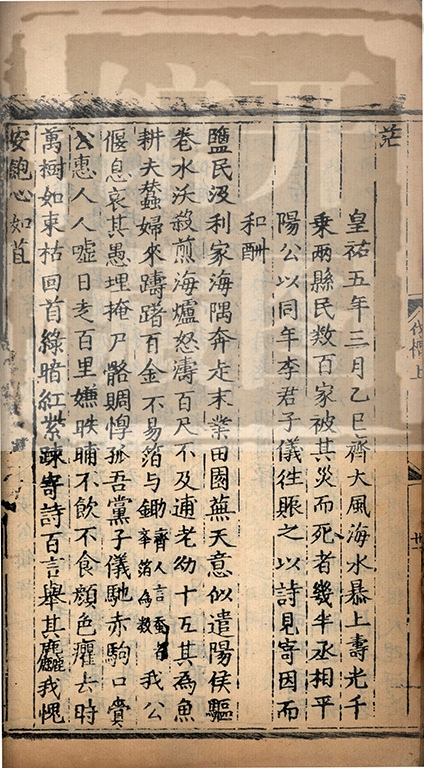 茫
皇祐五年三月乙巳齊大風海水暴上壽光千
乘兩縣民数百家被其災而死者幾半丞相平
陽公以同年李君子儀徃賑之以詩見寄因而
和酬
鹽民汲利家海隅奔走末業田園蕪天意似遣陽侯驅
卷水沃殺煎海爐怒濤百尺不及逋老幼十五其為魚
耕夫蠶婦來躊躇百金不易箔与鋤齊人言蚕箔為我公
偃息哀其愚埋掩尸骼賙惸孤吾黨子儀馳赤駒口賞
公惠人人噓日走百里嫌昳晡不飲不食顔色癯去時
萬樹如束枯回首綠暗紅紫疎寄詩百言舉其麤我愧
安飽心如苴